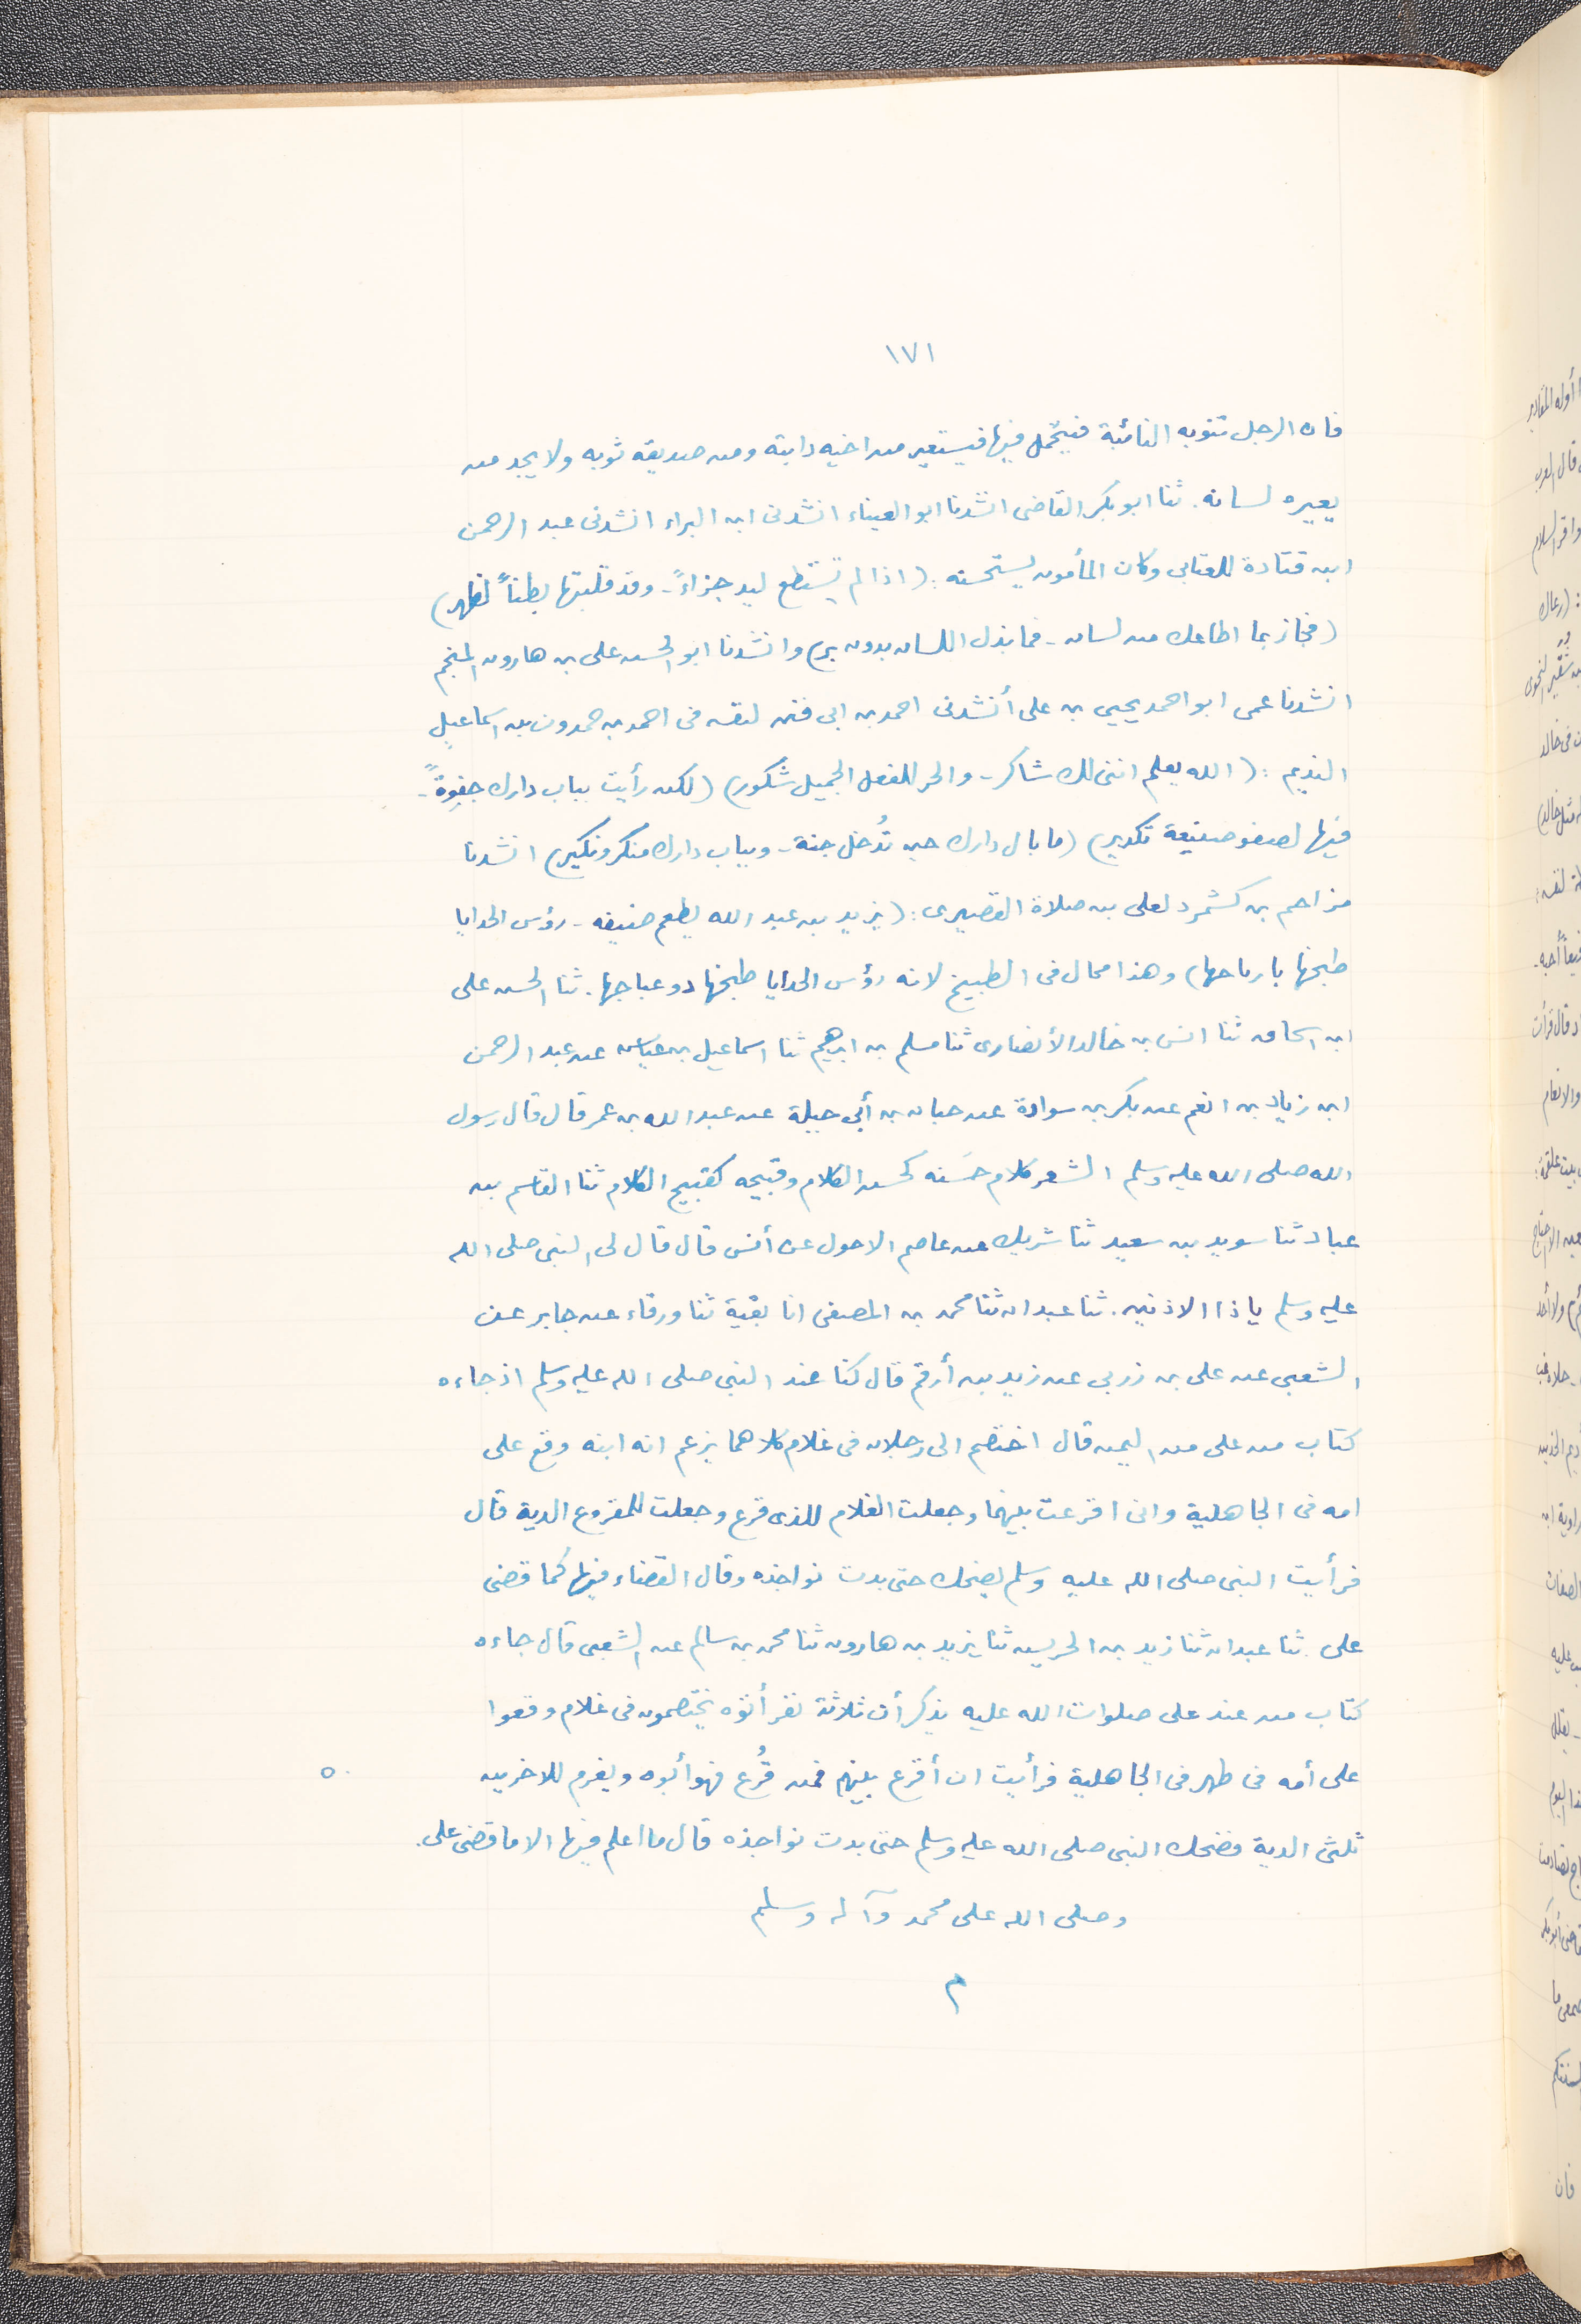 ١٧١
فان الرجل تنوبه النائبة فيتجمل فيها فيستعير من اخيه دابته ومن صديقه ثوبه ولا يجد من
يعيره لسانه. ثنا ابو بكر القاضى انشدنا ابو العيناء انشدنى ابن البراء انشدنى عبد الرحمن
ابن قتادة للعتابى وكان المأمون يستحسنه: (اذا لم تستطع ليد جزاءً - وقد قلبتها بطناً لظهر)
(فجاز بما اطاعك من لسان - فما بذل اللسان بدون بر) وانشدنا ابو الحسن على بن هارون المنجم
انشدنا عمى ابو احمد يحيى بن على أنشدنى احمد بن ابى فنن لنفسه فى احمد بن حمدون بن اسماعيل
النديم: (الله يعلم اننى لك شاكر - والحر للفعل الجميل شكور) (لكن رأيت بباب دارك جفوةً -
فيها لصفو صنيعة تكدير) (ما بال دارك حين تُدخل جنة - وبباب دارك منكر ونكير) انشدنا
مزاحم بن كشمرد لعلى بن صلاة القصيرى: (يزيد بن عبد الله يطعم ضيفه - رؤس الحدايا
طبخها بارياحها) وهذا محال فى الطبيخ لانه رؤس الحدايا طبخها دوعباجها. ثنا الحسن على
ابن اسحاق ثنا انس بن خالد الأنصارى ثنا مسلم بن ابرهيم ثنا اسماعيل بن عياش عن عبد الرحمن
ابن زياد بن انعم عن بكر بن سوادة عن حبان بن أبى جبلة عن عبد الله بن عمر قال قال رسول
الله صلى الله عليه وسلم الشعر كلام حسَنه كحسن الكلام وقبيحه كقبيح الكلام ثنا القاسم بن
عباد ثنا سويد بن سعيد ثنا شريك عن عاصم الاحول عن أنس قال قال لى النبى صلى الله
عليه وسلم ياذا الاذنين. ثنا عبدان ثنا محمد بن المصفى انا بقية ثنا ورقاء عن جابر عن
الشعبى عن على بن زربى عن زيد بن أرقم قال كنا عند النبى صلى الله عليه وسلم اذ جاءه
كتاب من على من اليمن قال اختصم الى رجلان فى غلام كلاهما يزعم انه ابنه وقع على
امه فى الجاهلية وانى اقرعت بينهما وجعلت الغلام للذى قرع وجعلت للمقروع الدية قال
فرأيت النبى صلى الله عليه وسلم يضحك حتى بدت نواجذه وقال القضاء فيها كما قضى
على. ثنا عبدان ثنا زيد بن الحريس ثنا يزيد بن هارون ثنا محمد بن سالم عن الشعبى قال جاءه
كتاب من عند على صلوات الله عليه يذكر أن ثلاثة نفر أتوه يختصمون فى غلام وقعوا
على أمه فى طهر فى الجاهلية فرأيت ان أقرع بينهم فمن قُرع فهو أبوه ويغرم للاخرين
ثلثى الدية فضحك النبى صلى الله عليه وسلم حتى بدت نواجذه قال ما اعلم فيها الا ما قضى على.
وصلى الله على محمد وآله وسلم
م